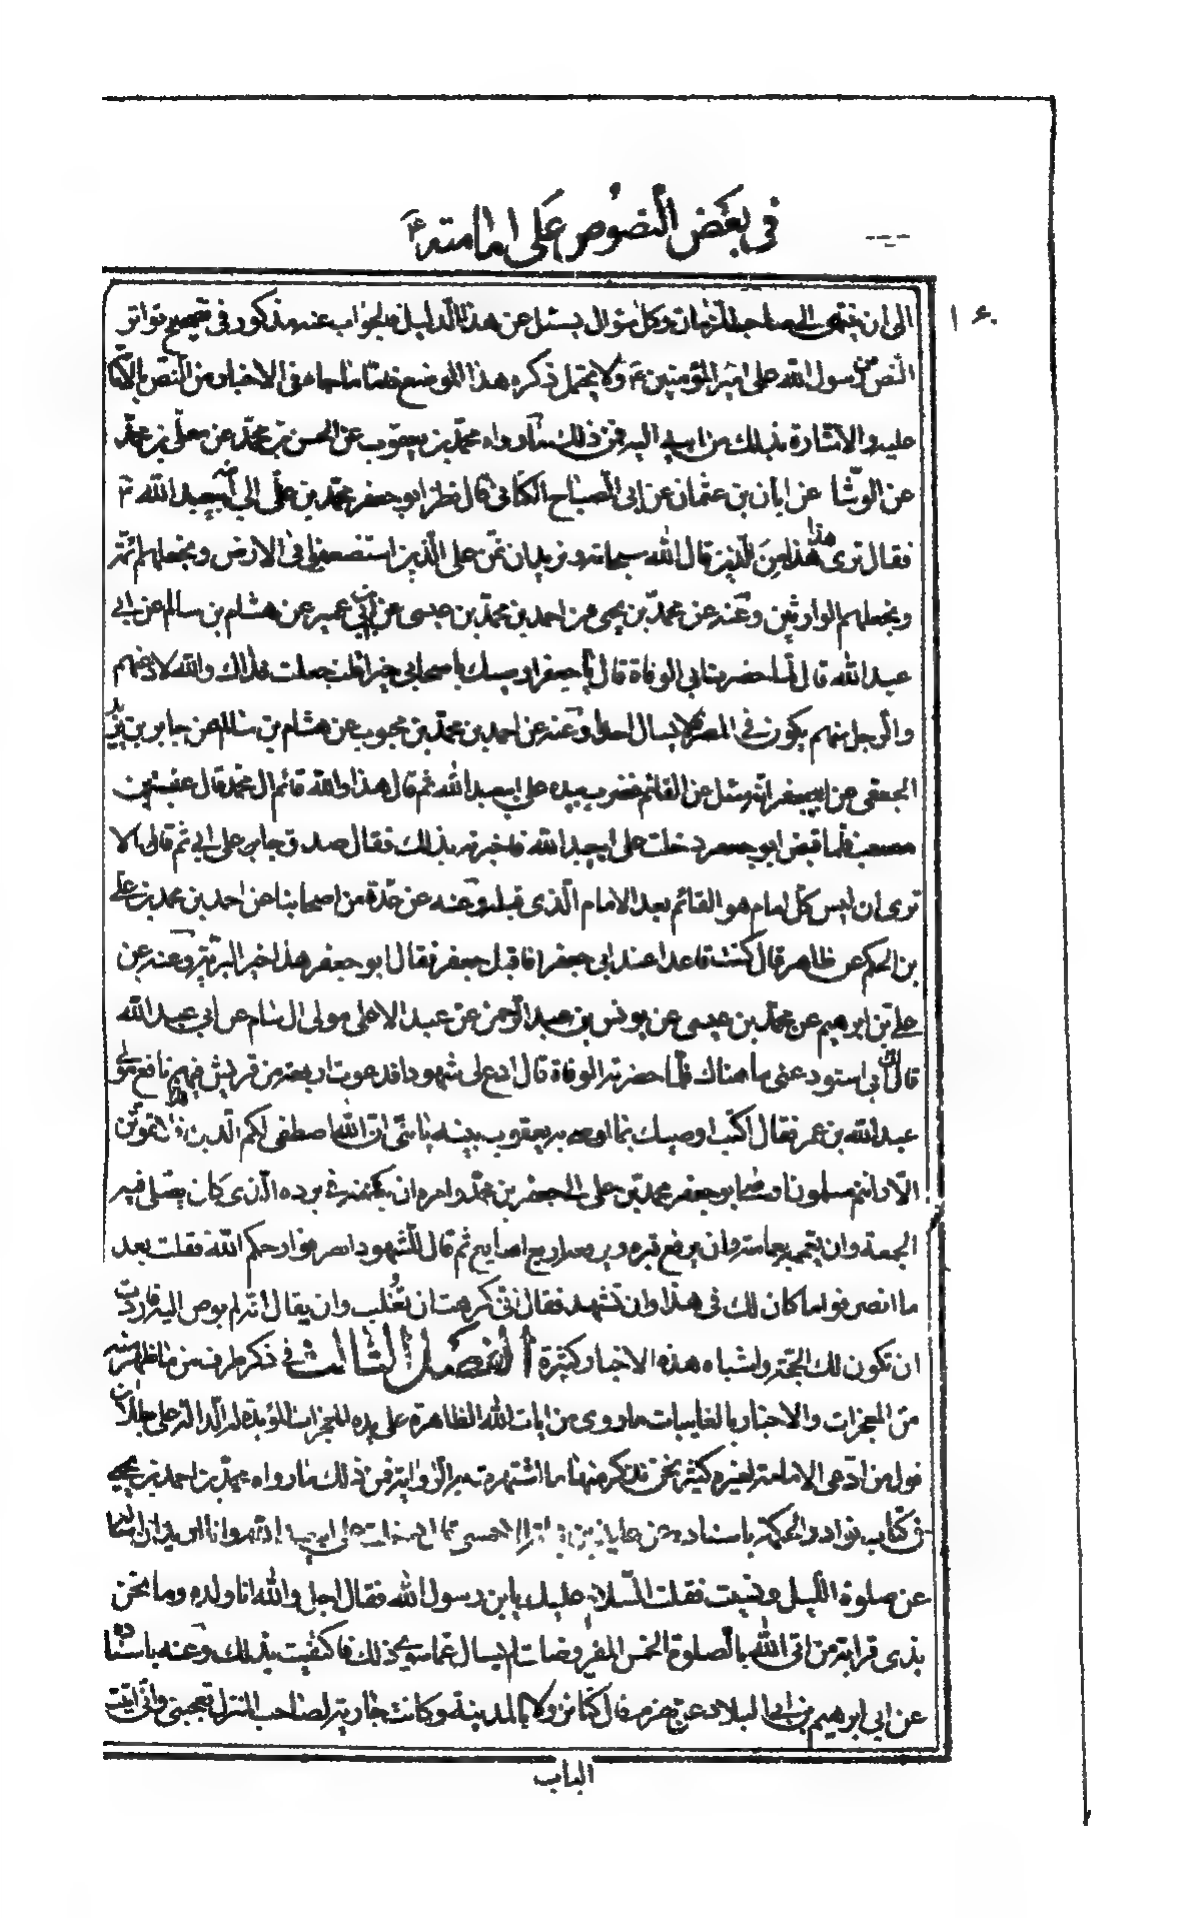 في بعض النصوص على امامته ع
١٦٠
الى ان ينتهى الى صاحب الزمان وكل سؤال يسئل عن هذا الدليل فالجواب عنه مذكور في تصحيح تواتر
النص من رسول الله على امير المؤمنين ع ولا يحتمل ذكره هذا الموضع فاما ما جاء في الاخبار من النص
عليه والاشارة بذلك من ابيه اليه فمن ذلك ما رواه محمد بن يعقوب عن الحسين بن محمد عن معلى بن محمد
عن الوشا عن ابان بن عثمان عن ابى الصباح الكنانى قال نظر ابو جعفر محمد بن على الى ابنه ابيعبد الله ع
فقال ترى هذا هذا من الذين قال الله سبحانه ونريد ان نمن على الذين استضعفوا فى الارض ونجعلهم ائمة
ونجعلهم الوارثين وعنه عن محمد بن يحيى عن احمد بن محمد بن عيسى عن ابن ابي عمير عن هشام بن سالم عن ابي
عبد الله قال لما حضرت ابي الوفاة قال يا جعفر اوصيك باصحابي خيرا قلت جعلت فداك والله لادعنهم
والرجل منهم يكون في المصر فلا يسال احدا وعنه عن احمد بن محمد بن محبوب عن هشام بن سالم عن جابر بن يزيد
الجعفى عن ابيجعفر انه سئل عن القائم فضرب بيده على ابيعبد الله ثم قال هذا والله قائم ال محمد قال عنبسة بن
مصعب فلما قبض ابو جعفر دخلت على ابيعبد الله فاخبرته بذلك فقال صدق جابر على ابي ثم قال الا
ترى ان ليس كل امام هو القائم بعد الامام الذى قبله وعنه عن عدة من اصحابنا عن احمد بن محمد عن على
بن الحكم عن طاهر قال كنت قاعدا عند ابى جعفر فاقبل جعفر فقال ابو جعفر هذا خير البرية وعنه عن
على بن ابرهيم عن محمد بن عيسى عن يونس بن عبد الرحمن عن عبد الاعلى مولى ال سام عن ابي عبد الله
قال ان ابى استودعنى ما هناك فلما حضرته الوفاة قال ادع لى شهودا فدعوت اربعة من قريش فيهم نافع مولى
عبد الله بن عمر فقال اكتب هذا ما اوصى به يعقوب بنيه يا بنى ان الله اصطفى لكم الدين فلا تموتن
الا وانتم مسلمون واوصى ابو جعفر محمد بن على الى جعفر بن محمد وامره ان يكفنه في برده الذى كان يصلى فيه
الجمعة وان يعممه بعمامته وان يربع قبره ويرفعه اربع اصابيع ثم قال للشهود انصرفوا رحمكم الله فقلت بعد
ما انصرفوا ما كان لك فى هذا وان تشهد فقال انى كرهت ان تغلب وان يقال انه لم يوص اليه فاردت
ان تكون لك الحجة واشباه هذه الاخبار كثيرة الفصل الثالث في ذكر طرف مما ظهر منه
من المعجزات والاخبار بالغايبات ما روى من ايات الله الظاهرة على يده المعجزات المؤيدة له الدالة على بطلان
قول من ادعى الامامة لغيره كثير نحن نذكر منها ما اشتهر به الرواية فمن ذلك ما رواه محمد بن احمد بن يحيى
في كتاب نوادر الحكمة باسناده عن عايذ الاحمسى قال دخلت على ابيعبد الله وانا اريد ان اسئله
عن صلوة الليل ونسيت فقلت السلام عليك يا بن رسول الله فقال اجل والله انا ولده وما نحن
بذى قرابة من اتى الله بالصلوة الخمس المفروضات لم يسال عما سوى ذلك فاكتفيت بذلك وعنه باسناده
عن ابي ابرهيم بن ابي البلاد عن مهزم قال كنا نزولا بالمدينة وكانت جارية لصاحب المنزل تعجبني واني اتيت
الباب